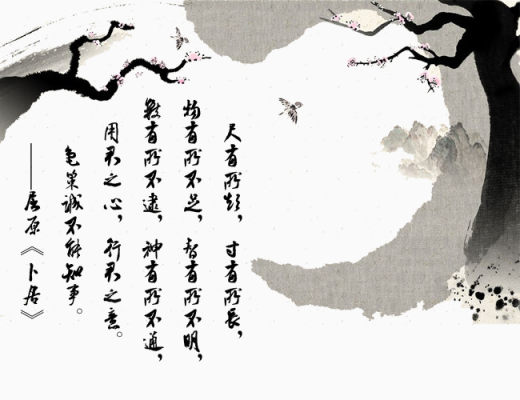 尺有所短，寸有所長，
物有所不足，智有所不明，
数有所不逮，神有所不通，
用君之心，行君之意。
龟策誠不能知事。
——屈原《卜居》